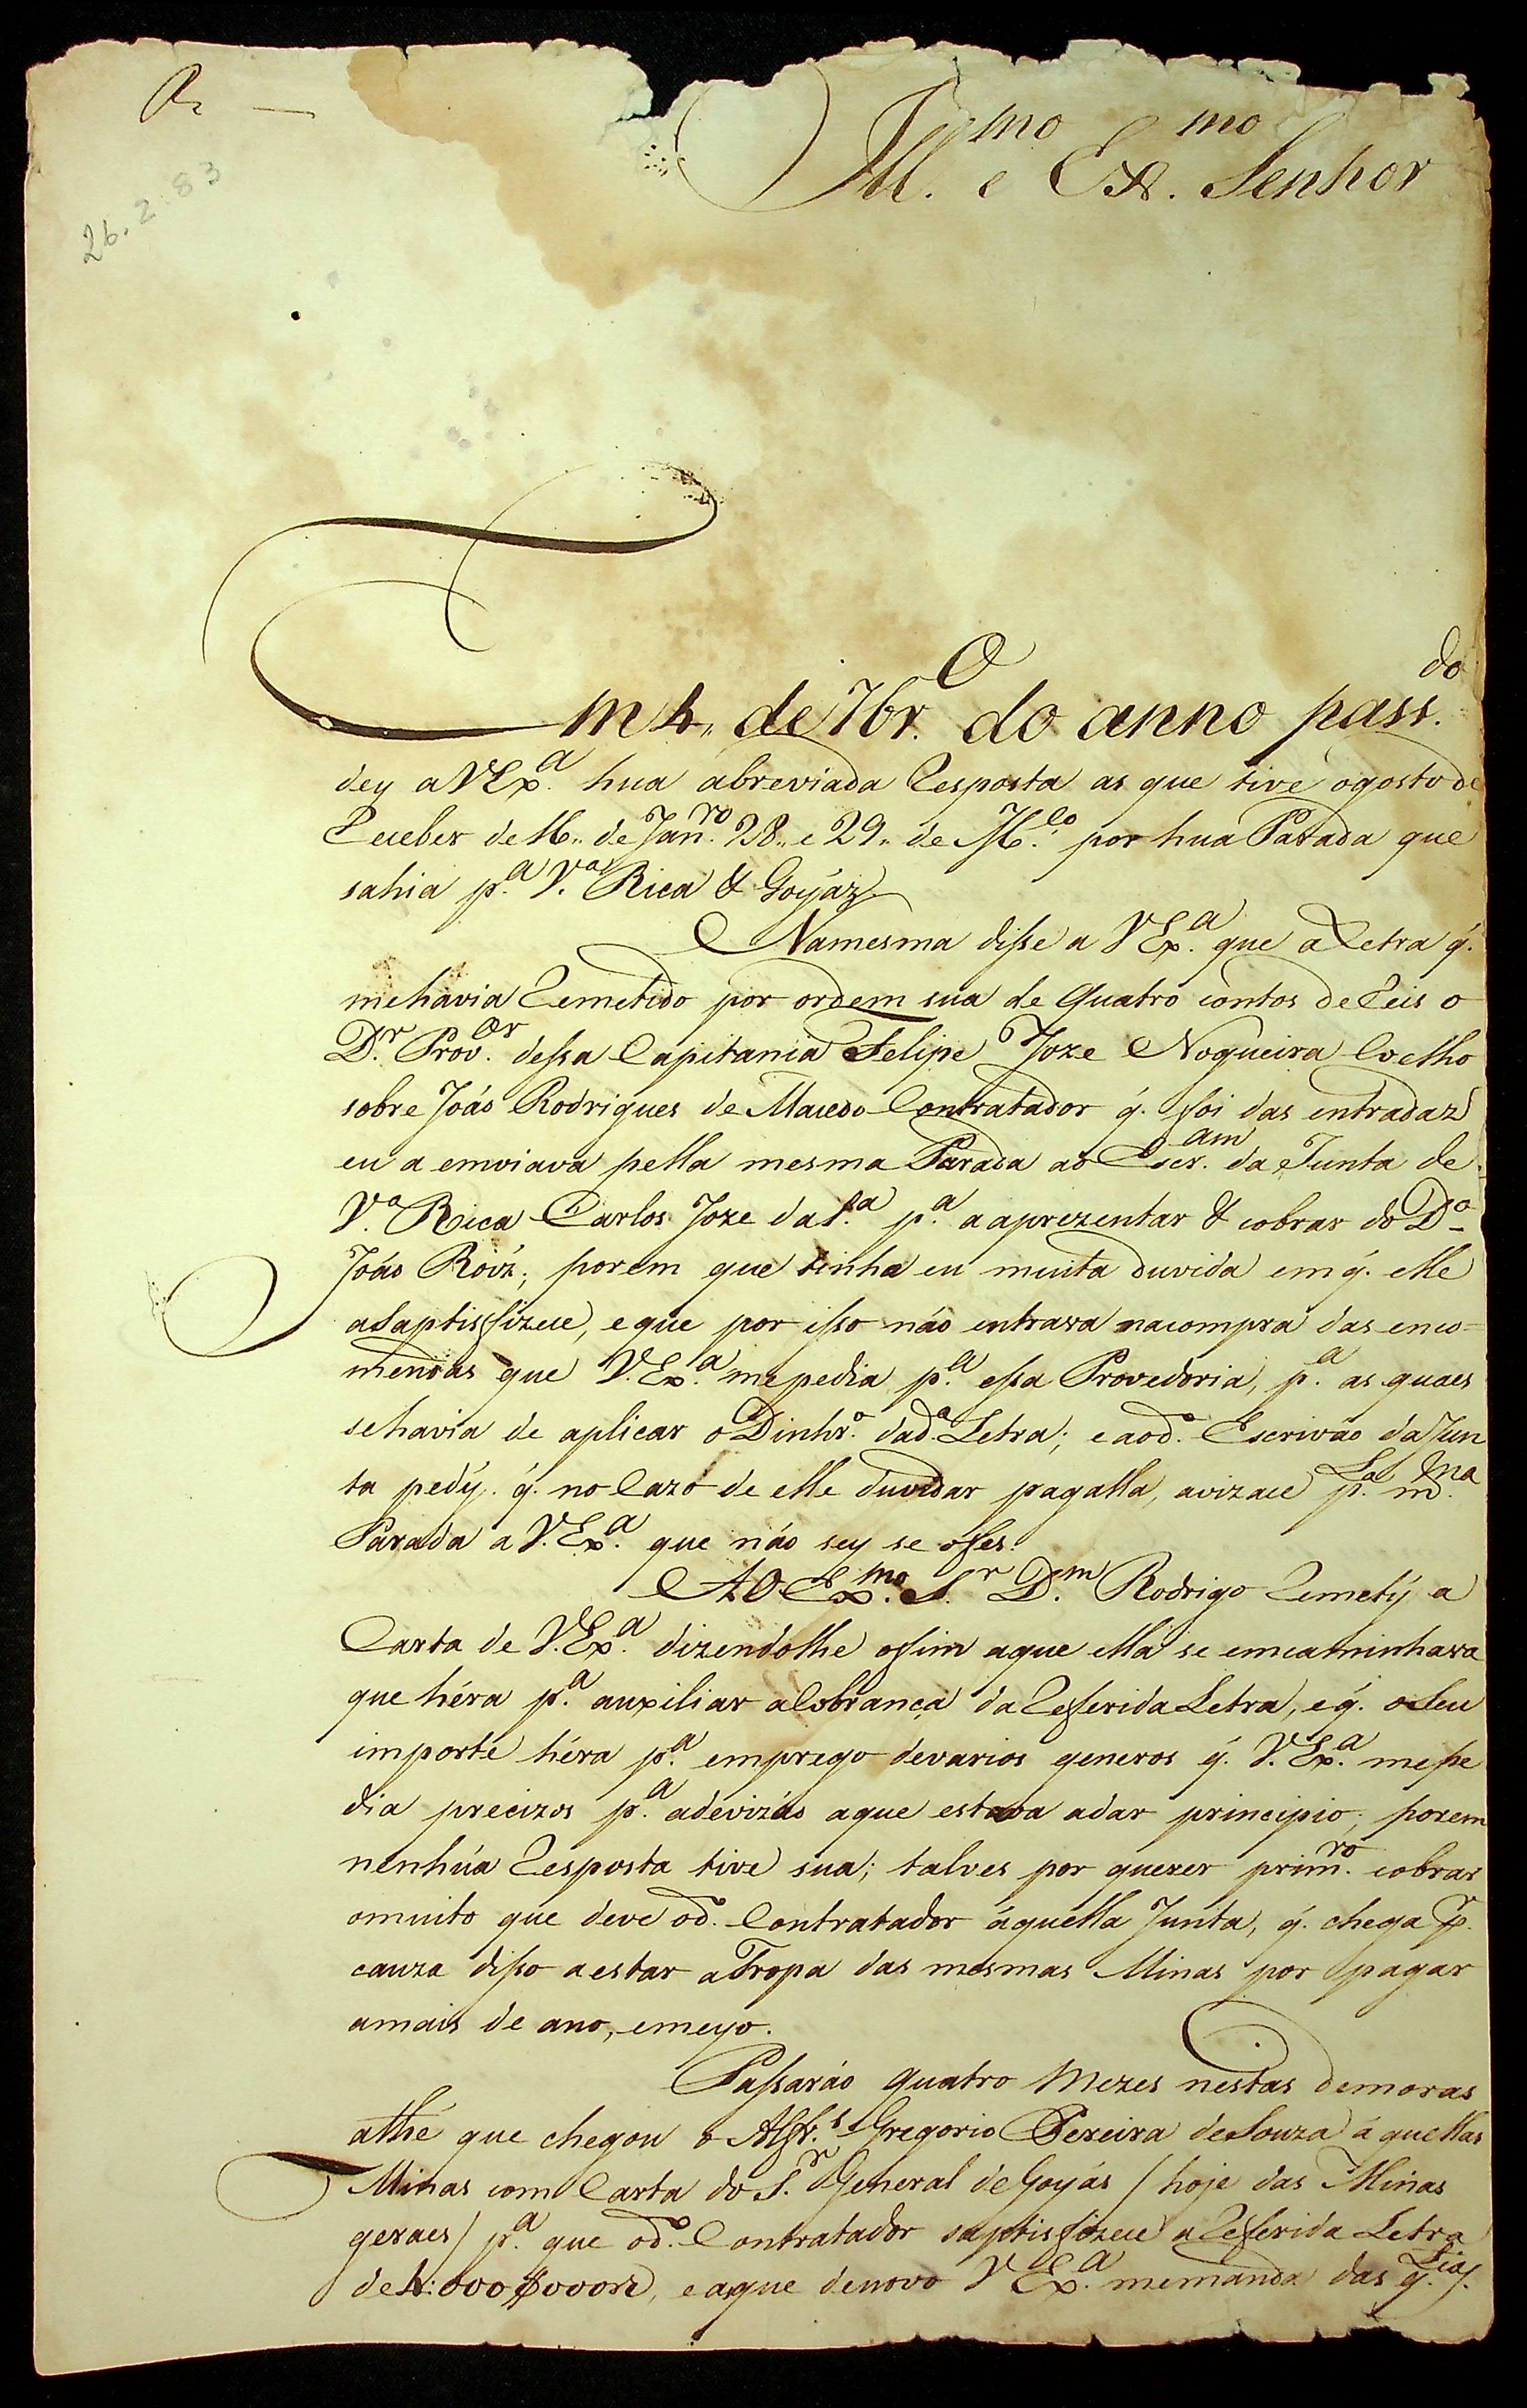 Rc —
26.2.83
Ill.mo e Ex.mo Senhor
Em 4,, de 7br.o do anno pass.do
dey a VEx.a hua abreviada Resposta as que tive ogosto de
Receber de 16,, de Jan.ro 28,, e 29,, de M.ço por hua Parada que
sahia p.a V.a Rica & Goyáz
Namesma disse a VEx.a que a Letra q.
mehavia Remetido por ordem sua de Quatro contos de Reis o
D.r Prov.or dessa Capitania Felipe Joze Nogueira Coelho
sobre Joáo Rodrigues de Macedo Contratador q. foi das entradaz
eu a emviava pella mesma Parada ao Escr.am da Junta de
V.a Rica Carlos Joze da S.a p.a a aprezentar & cobrar do D.o
Joáo Roiz; porem que tinha eu muita duvida em q. elle
aSaptisfizece, e que por isso náo entrava nacompra das enco-
mendas que V.Ex.a mepedia p.a essa Provedoria, p.a as quaes
sehavia de aplicar o Dinhr.o dad.a Letra; e aod.o Escriváo da Jun
ta pedý. q. no Cazo de elle duvidar pagalla, avizace p.La m.ma
Parada a V.Ex.a que náo sey se ofes.
AO Ex.mo S.r D.m Rodrigo Remetý a
Carta de V.Ex.a dizendolhe ofim aque ella se emcaminhava
que héra p.a auxiliar aCobrança da Referida Letra, e q. oSeu
importe héra p.a emprego devarios generos q. V.Ex.a mepe
dia precizos p.a adevizáo aque estava adar principio; porem
nenhúa Resposta tive sua; talves por querer prim.ro cobrar
omuito que deve od.o Contratador áquella Junta, q. chega p.r
cauza disso aestar aTropa das mesmas Minas por pagar
amais de ano, emeyo.
Passaráo quatro Mezes nestas demoras
athé que chegou o Alfr.s Gregorio Pereira deSouza áquellas
Minas com Carta do S.r General de Goyás / hoje das Minas
geraes / p.a que od.o Contratador saptisfizece a Referida Letra
de 4:000$000rs, e aque denovo VEx.a memanda das q.tias.